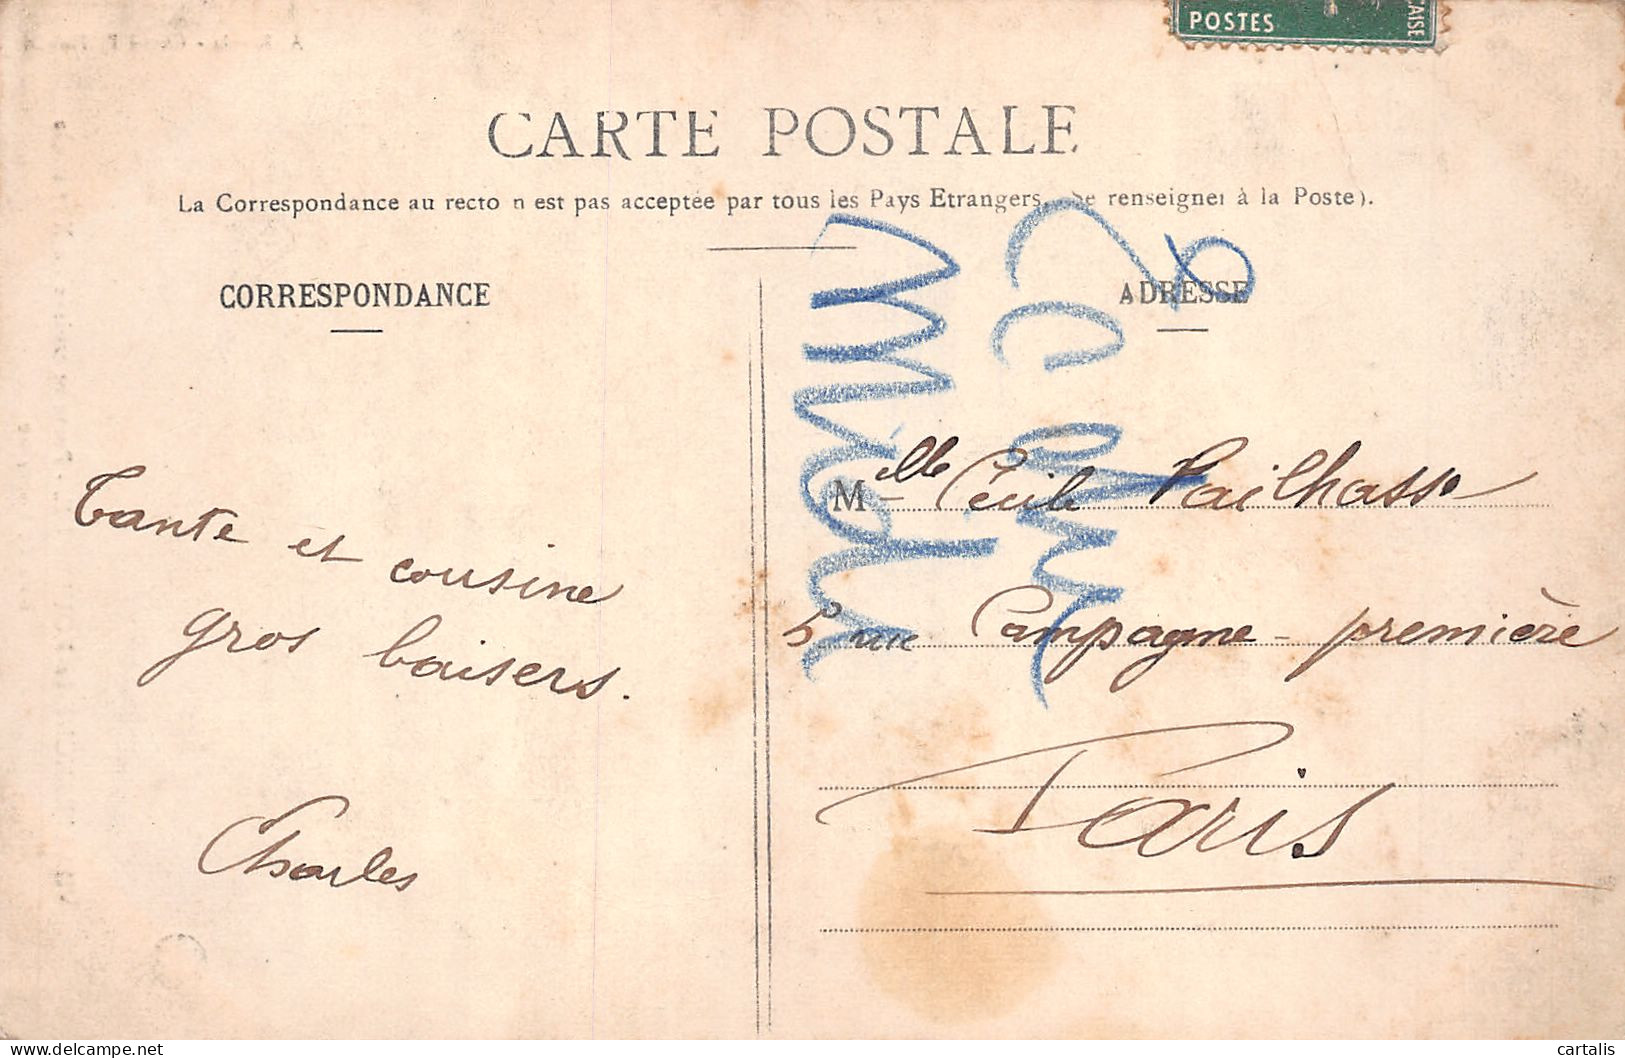 POSTES
CARTE POSTALE
La Correspondance au recto n est pas acceptée par tous les Pays Etrangers, Se renseigner à la Poste).
CORRESPONDANCE
ADRESSE
Tante et cousine
gros baisers.
Charles
Melle Cécile Pailhasse
5 rue Campagne-première
Paris
delcampe.net
cartalis